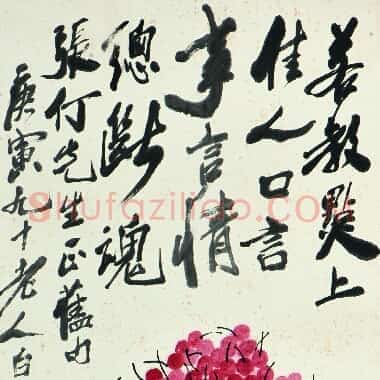 若教點上
佳人口言
事言情
總斷魂
張仃先生正舊句
庚寅九十老人白
Shufaziliao.com